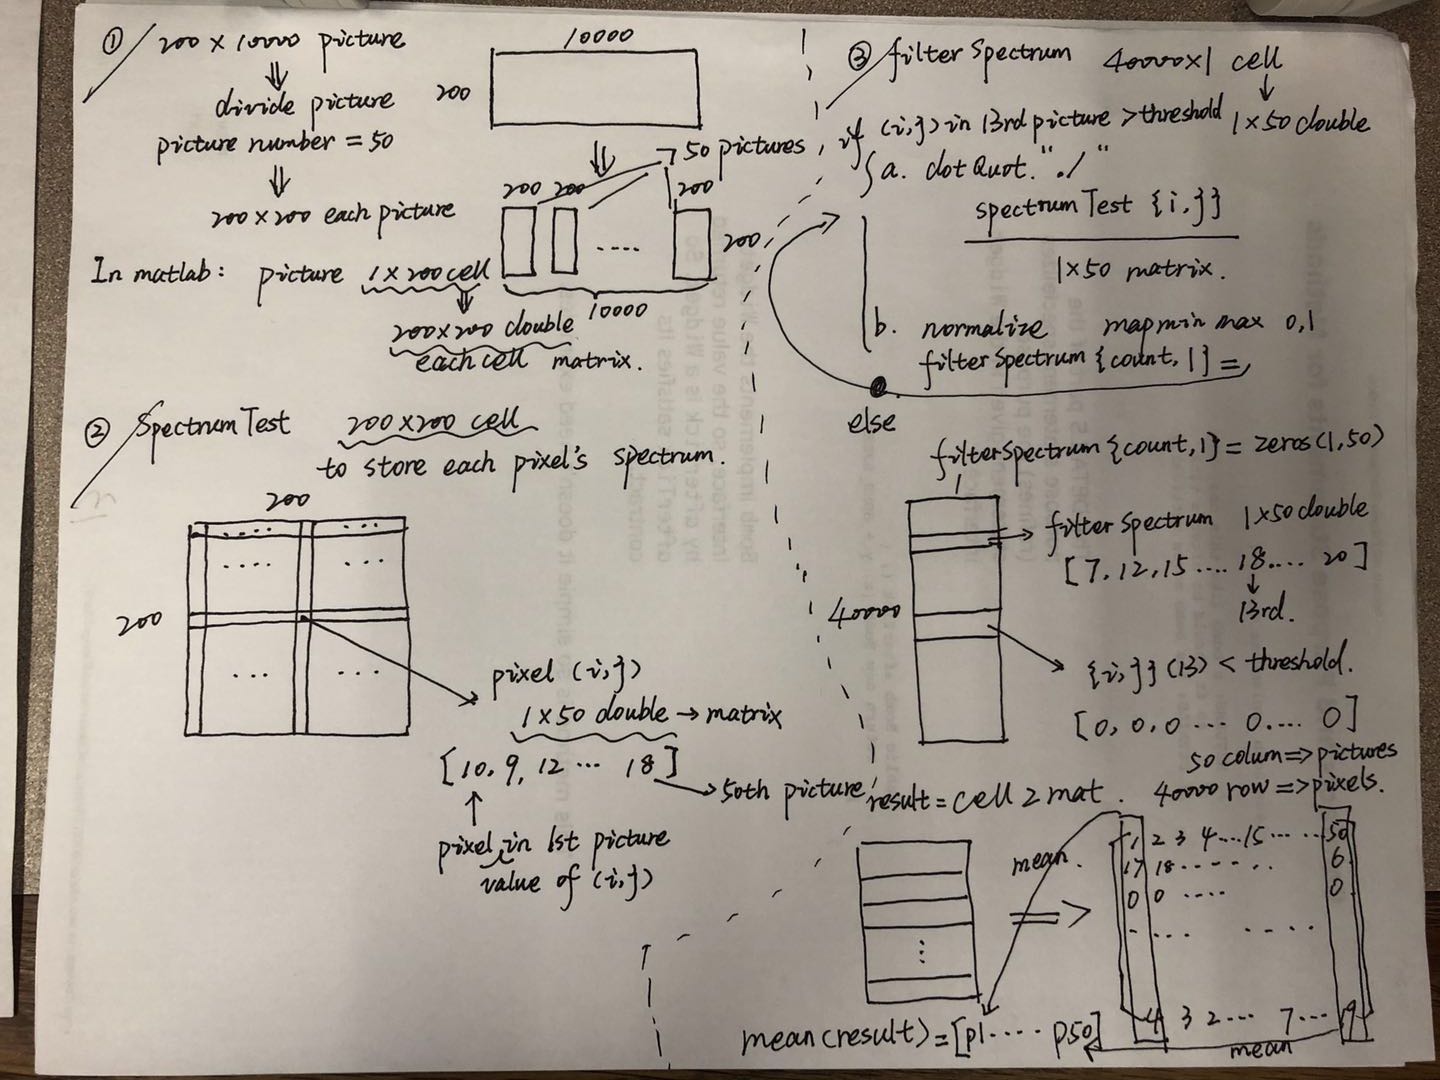 ① 200 × 10000 picture
⇓
divide picture
picture number = 50
⇓
200 × 200 each picture
10000
200
⇓
50 pictures
200 200 200
....
200
10000
In matlab: picture 1 × 200 cell
⇓
200×200 double
each cell matrix.
② SpectrumTest 200×200 cell
to store each pixel's spectrum.
200
... ...
.... ...
200
... ...
pixel (i,j)
1 × 50 double → matrix
[10, 9, 12 ... 18]
→ 50th picture
↑
pixel in 1st picture
value of (i,j)
③ filterSpectrum 40000×1 cell
↓
1 × 50 double
if (i,j) in 13rd picture > threshold
a. dot Quot. "./"
spectrumTest {i,j}
1×50 matrix.
b. normalize mapminmax 0,1
filterSpectrum {count, 1} =
else
filterSpectrum {count,1} = zeros(1,50)
1
40000
→ filterSpectrum 1×50 double
[7, 12, 15 .... 18 .... 20]
↓
13rd.
{i,j}(13) < threshold.
[0, 0, 0 ... 0 .... 0]
50 colum => pictures
40000 row => pixels.
result = cell2mat.
mean.
=>
1 2 3 4 ... 15 ... ... 50
17 18 ...... .. 6
0 0 .... 0
. ... ....
4 3 2 ... 7 ... 9
mean(result) = [p1 .... p50]
mean